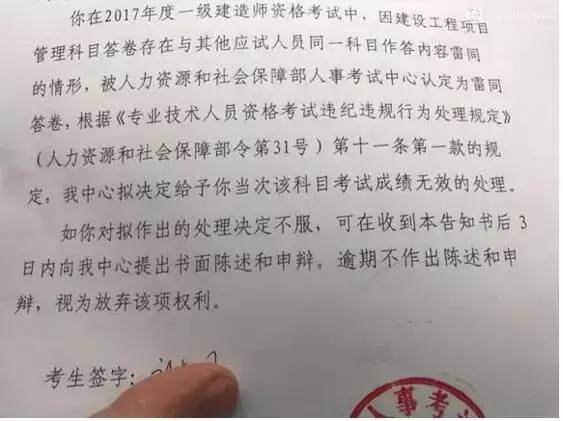 你在2017年度一级建造师资格考试中，因建设工程项目
管理科目答卷存在与其他应试人员同一科目作答内容雷同
的情形，被人力资源和社会保障部人事考试中心认定为雷同
答卷，根据《专业技术人员资格考试违纪违规行为处理规定》
（人力资源和社会保障部令第31号）第十一条第一款的规
定，我中心拟决定给予你当次该科目考试成绩无效的处理。
如你对拟作出的处理决定不服，可在收到本告知书后3
日内向我中心提出书面陈述和申辩。逾期不作出陈述和申
辩，视为放弃该项权利。
考生签字：
人事考